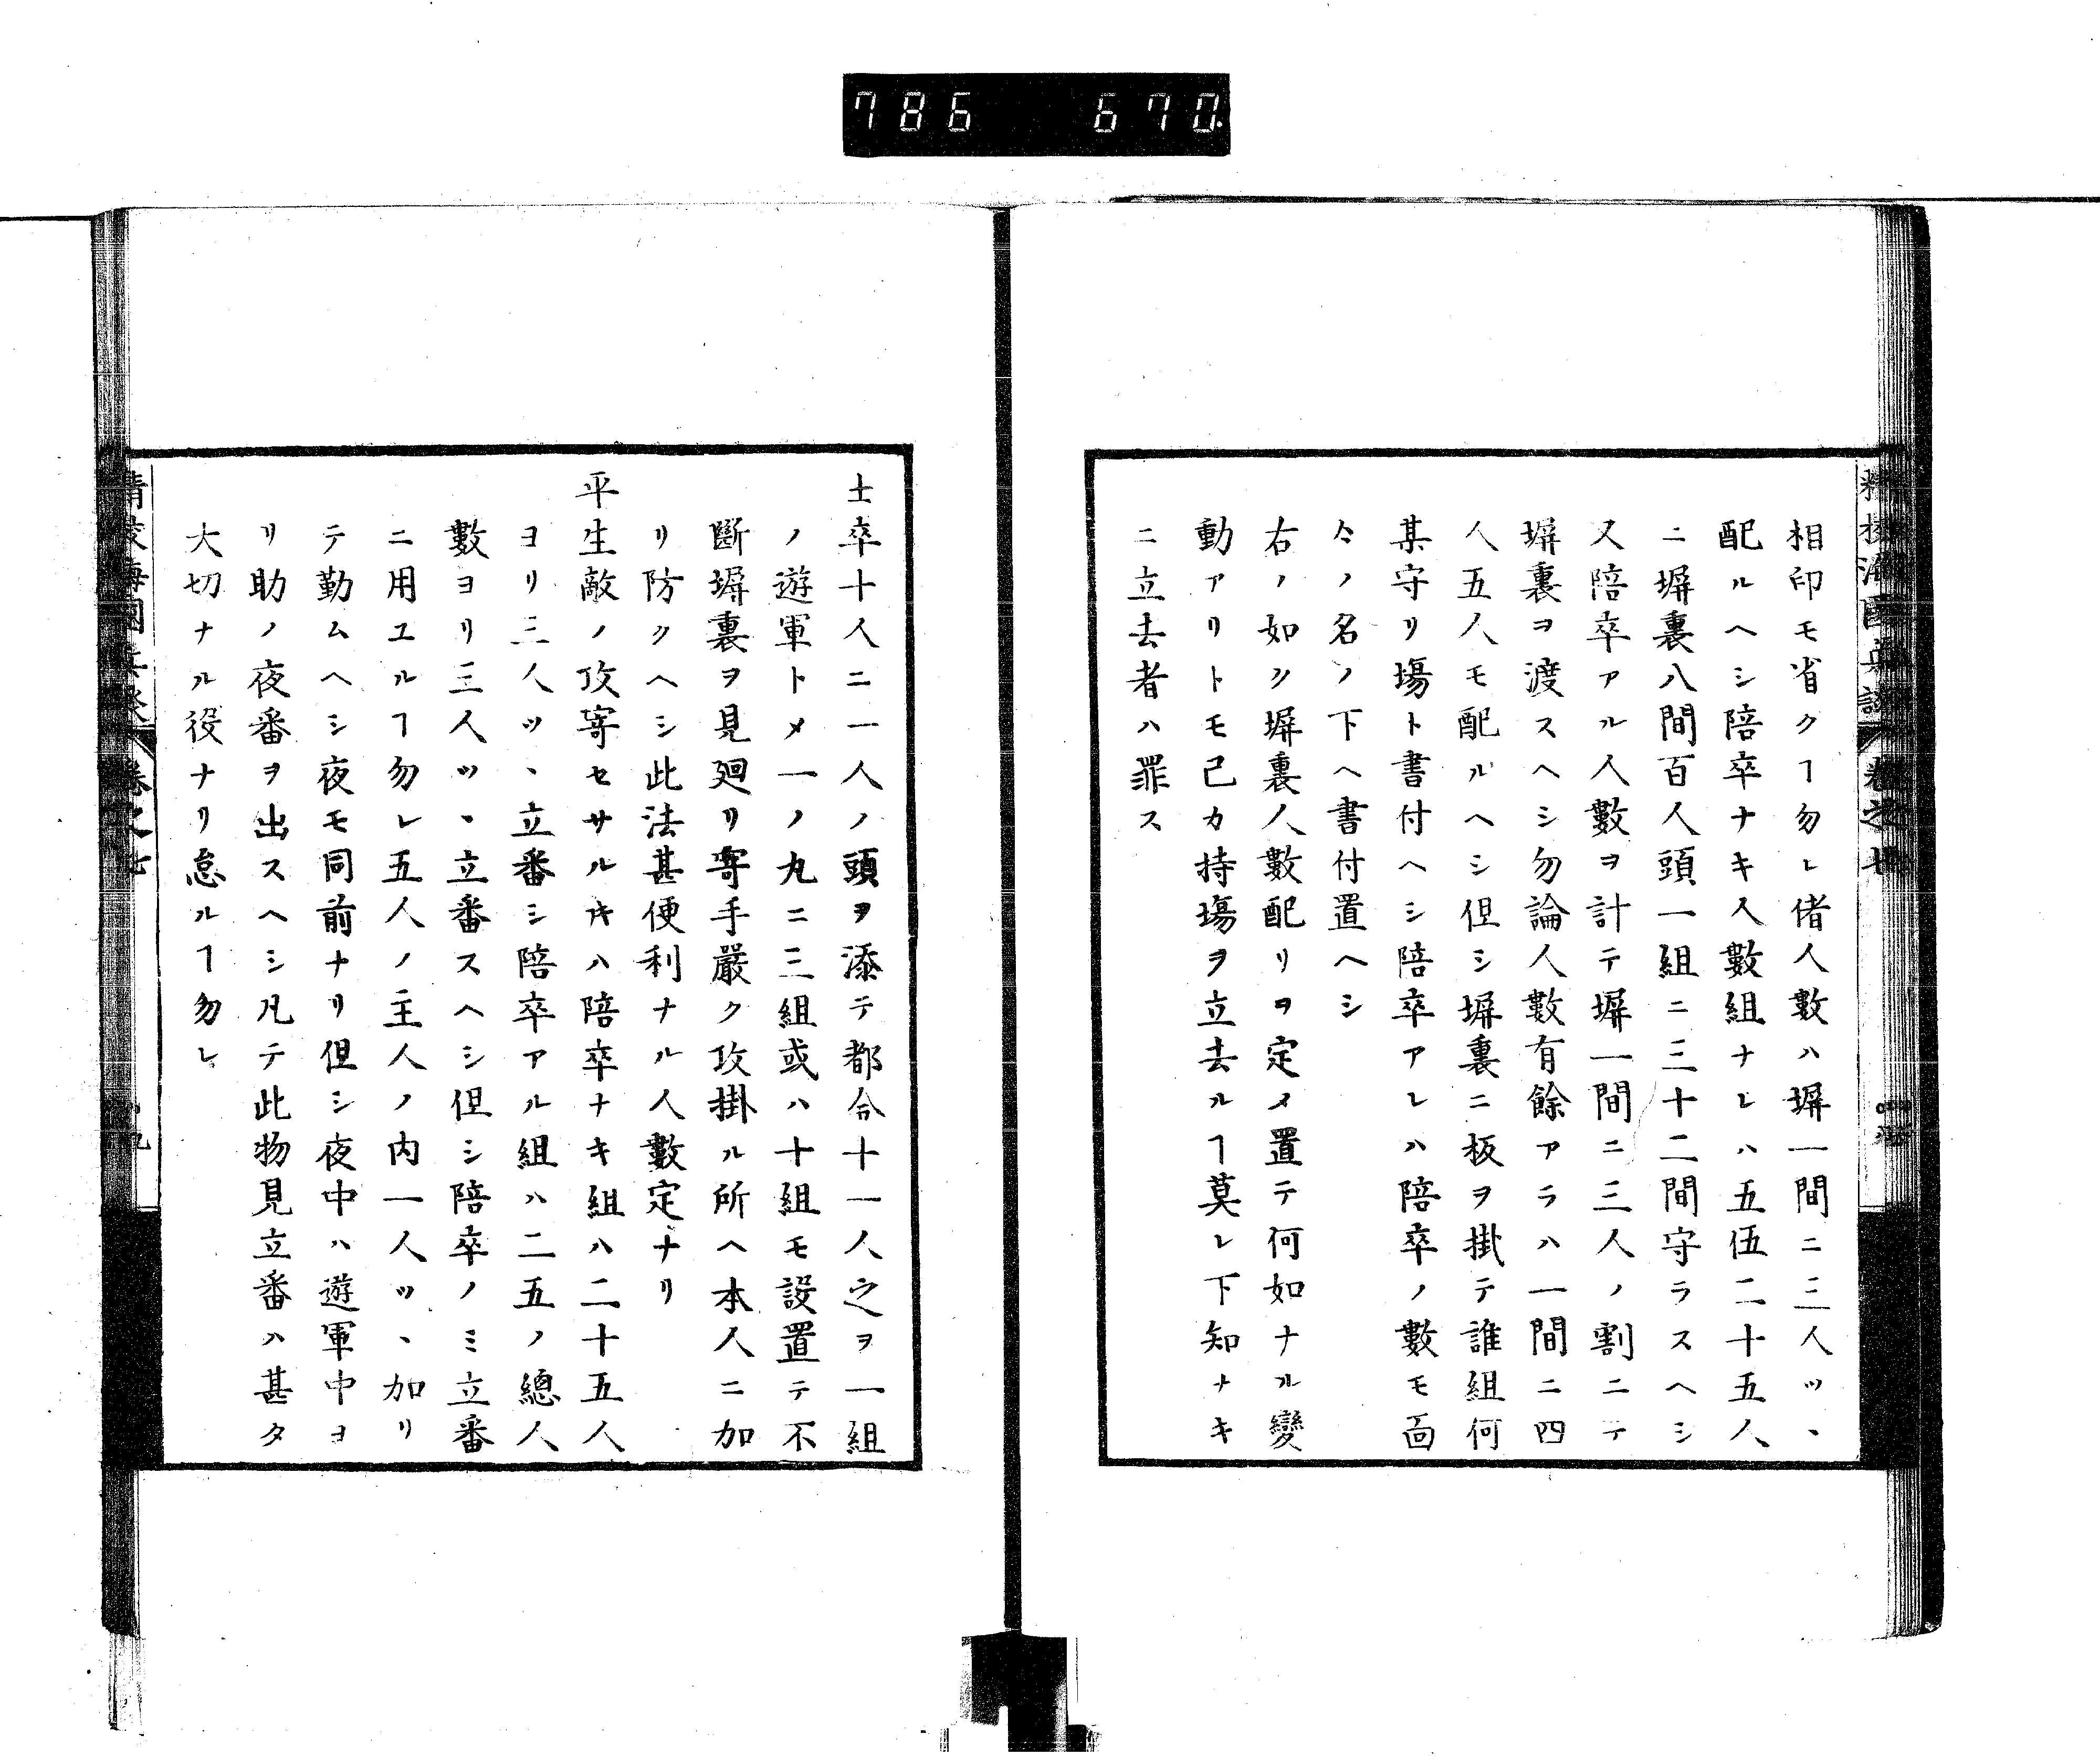 786 670.
相印モ省クヿ勿レ偖人數ハ塀一間ニ三人ツヽ
配ルヘシ陪卒ナキ人數組ナレハ五伍二十五人
ニ塀裏八間百人頭一組ニ三十二間守ラスヘシ
又陪卒アル人數ヲ計テ塀一間ニ三人ノ割ニテ
塀裏ヲ渡スヘシ勿論人數有餘アラハ一間ニ四
人五人モ配ルヘシ但シ塀裏ニ板ヲ掛テ誰組何
某守リ塲ト書付ヘシ陪卒アレハ陪卒ノ數モ面
々ノ名ノ下ヘ書付置ヘシ
右ノ如ク塀裏人數配リヲ定メ置テ何如ナル變
動アリトモ己カ持塲ヲ立去ルヿ莫レ下知ナキ
ニ立去者ハ罪ス
士卒十人ニ一人ノ頭ヲ添テ都合十一人之ヲ一組
ノ遊軍トメ一ノ丸ニ三組或ハ十組モ設置テ不
斷塀裏ヲ見廻リ寄手嚴ク攻掛ル所ヘ本人ニ加
リ防クヘシ此法甚便利ナル人數定ナリ
平生敵ノ攻寄セサルキハ陪卒ナキ組ハ二十五人
ヨリ三人ツヽ立番シ陪卒アル組ハ二五ノ總人
數ヨリ三人ツヽ立番スヘシ但シ陪卒ノミ立番
ニ用ユルヿ勿レ五人ノ主人ノ内一人ツヽ加リ
テ勤ムヘシ夜モ同前ナリ但シ夜中ハ遊軍中ヨ
リ助ノ夜番ヲ出スヘシ凡テ此物見立番ハ甚タ
大切ナル役ナリ怠ルヿ勿レ
精校海國兵談 卷之七